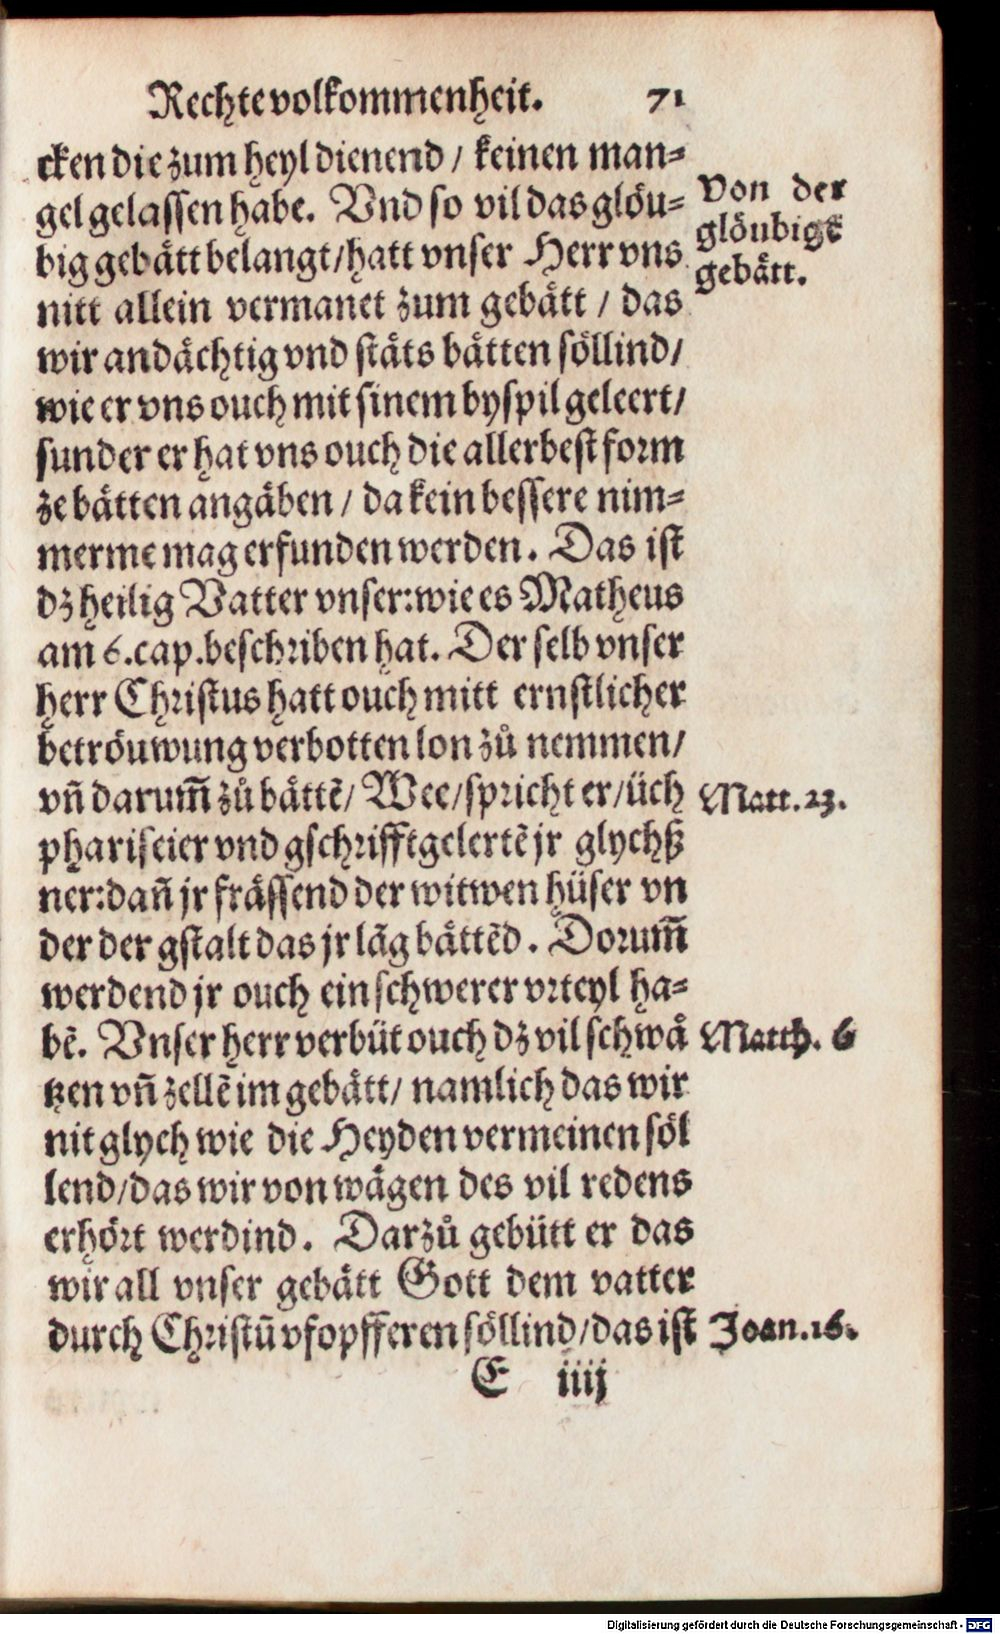 Rechte volkommenheit. 71
cken die zum heyl dienend / keinen man⸗
gel gelassen habe. Vnd so vil das glöu⸗
Von der
glöubigē
gebätt.
big gebätt belangt/hatt vnser Herr vns
nitt allein vermanet zum gebätt / das
wir andächtig vnd stäts bätten söllind/
wie er vns ouch mit sinem byspil geleert/
sunder er hat vns ouch die allerbest form
ze bätten angäben / da kein bessere nim⸗
merme mag erfunden werden. Das ist
dz heilig Vatter vnser:wie es Matheus
am 6.cap.beschriben hat. Der selb vnser
herr Christus hatt ouch mitt ernstlicher
betröuwung verbotten lon zů nemmen/
vñ darum̃ zů bättē/ Wee/spricht er/üch
Matt.23.
phariseier vnd gschrifftgelertē jr glychß
ner:dañ jr frässend der witwen hüser vn
der der gstalt das jr lāg bättēd. Dorum̃
werdend jr ouch ein schwerer vrteyl ha⸗
bē. Vnser herr verbüt ouch dz vil schwä
Matth. 6
tzen vñ zellē im gebätt/ namlich das wir
nit glych wie die Heyden vermeinen söl
lend/das wir von wägen des vil redens
erhört werdind. Darzů gebütt er das
wir all vnser gebätt Gott dem vatter
durch Christū vfopfferen söllind/das ist
Joan.16.
E iiij
Digitalisierung gefördert durch die Deutsche Forschungsgemeinschaft - DFG